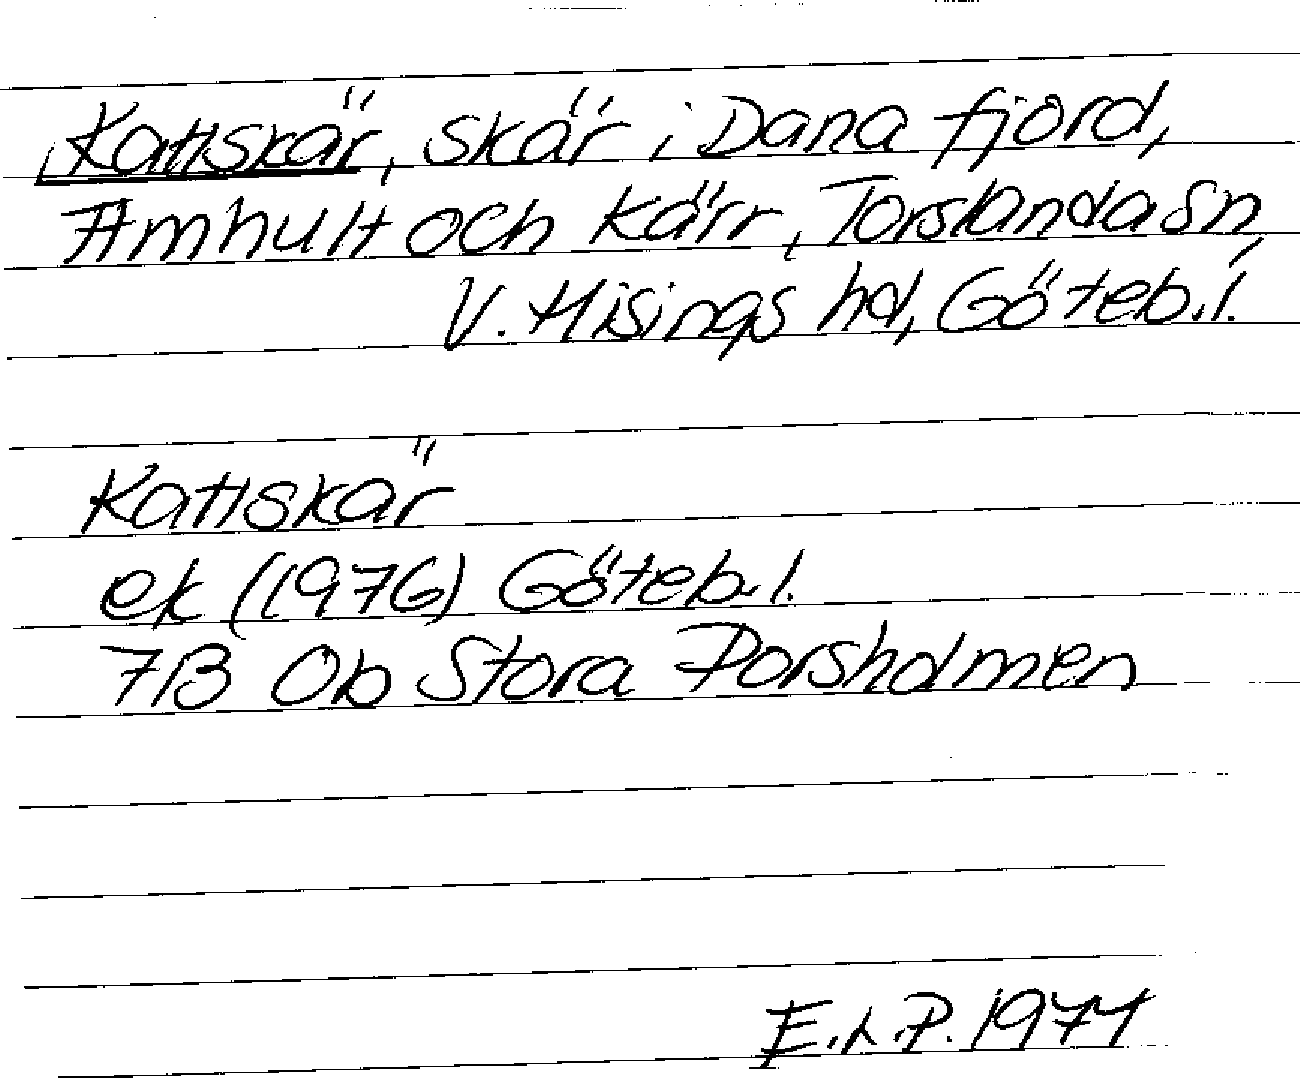 Kattskär, skär i Dana fjord,
Amhult och Kärr, Torslanda sn,
V. Hisings hd, Göteb. l.
Kattskär
ek (1976) Göteb. l.
7B Ob Stora Porsholmen
E.L.P. 1977